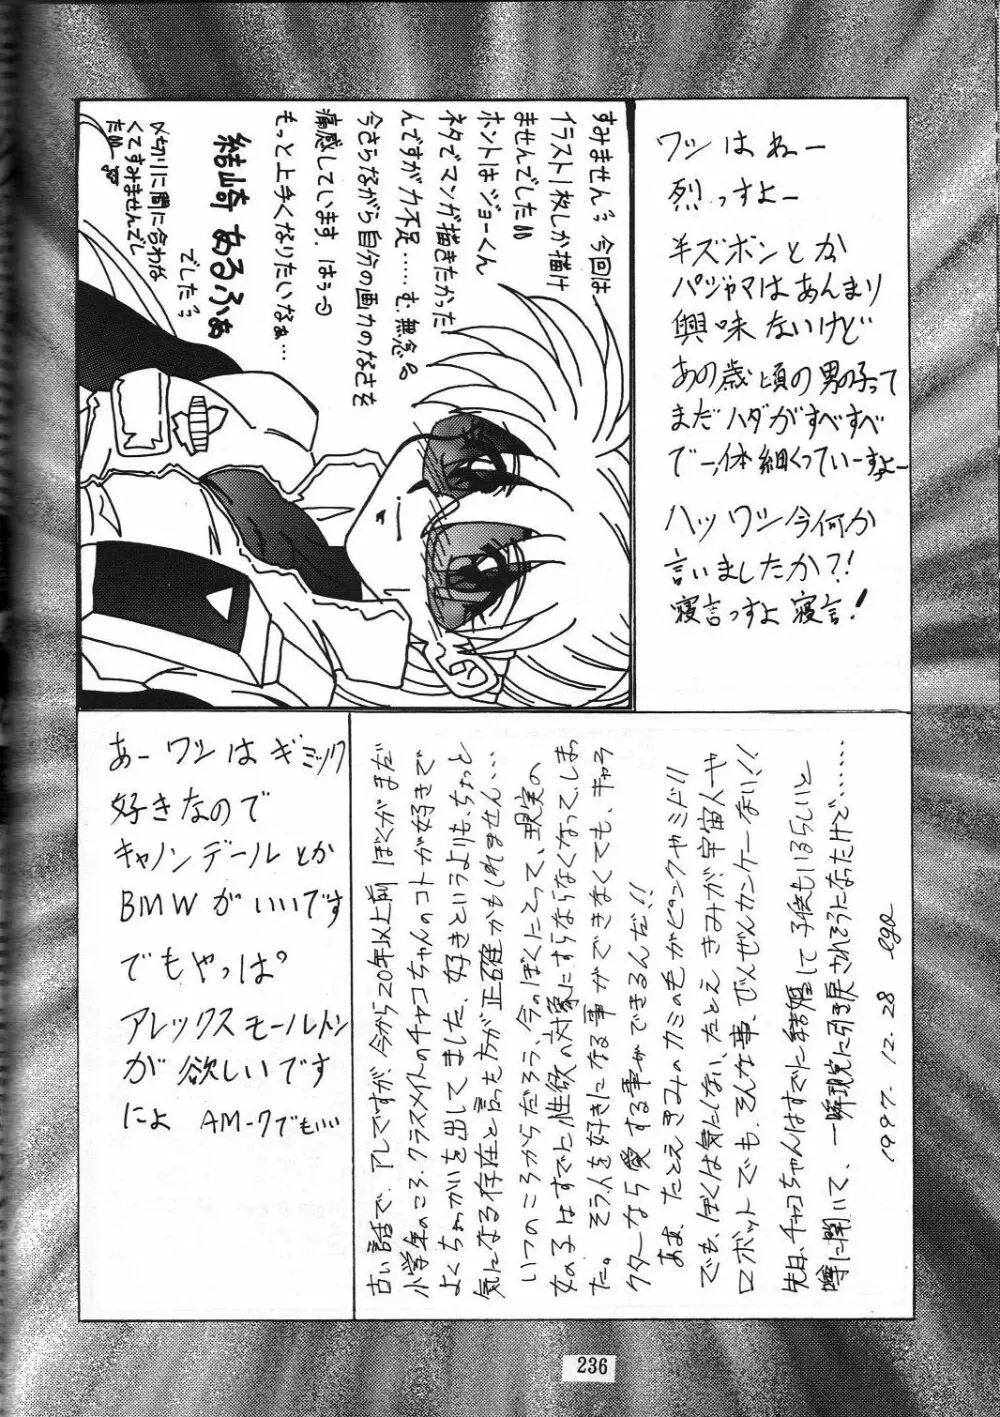 ワシはねー
烈っすよー
半ズボンとか
パジャマはあんまり
興味ないけど
あの歳頃の男の子って
まだハダがすべすべ
でー、体細くっていーすよー
ハッ ワシ今何か
言いましたか?!
寝言っすよ 寝言!
すみません 今回は
イラスト1枚しか描け
ませんでした
ホントはジョーくん
ネタでマンガ描きたかった
んですが力不足……む、無念。
今さらながら自分の画力のなさを
痛感しています。はぅ
もっと上手くなりたいなぁ…
結崎 あるふぁ
でした
〆切りに間に合わな
くてすみませんでし
た
あー ワシはギミック
好きなので
キャノンデールとか
BMWがいいです
でもやっぱ
アレックスモールトン
が欲しいです
によ AM-7でもいい
古い話で、アレですが、今から20年以上前 ぼくがまだ
小学生のころ、クラスメイトのチャコちゃんのコトが好きで
よくちょっかいを出してました、好きというよりも、ちょっと
気になる存在と言った方が正確かもしれません…
いつのころからだろう、今のぼくにとって、現実の
女の子はすでに性欲の対象にすらならなくなってしま
った。そう人を好きになる事ができなくても、キャラ
クターなら愛する事ができるんだ!!
ああ、たとえきみのカミの毛がピンクやミドリ!
でも、ぼくは気にしない、たとえ きみが、宇宙人や
ロボットでも、そんな事、ぜんぜんカンケーない!!
先日、チャコちゃんはすでに結婚して子供もいるらしいと
噂に聞いて、一瞬現実に引き戻されそうになったけど……
1997.12.28 ega
236